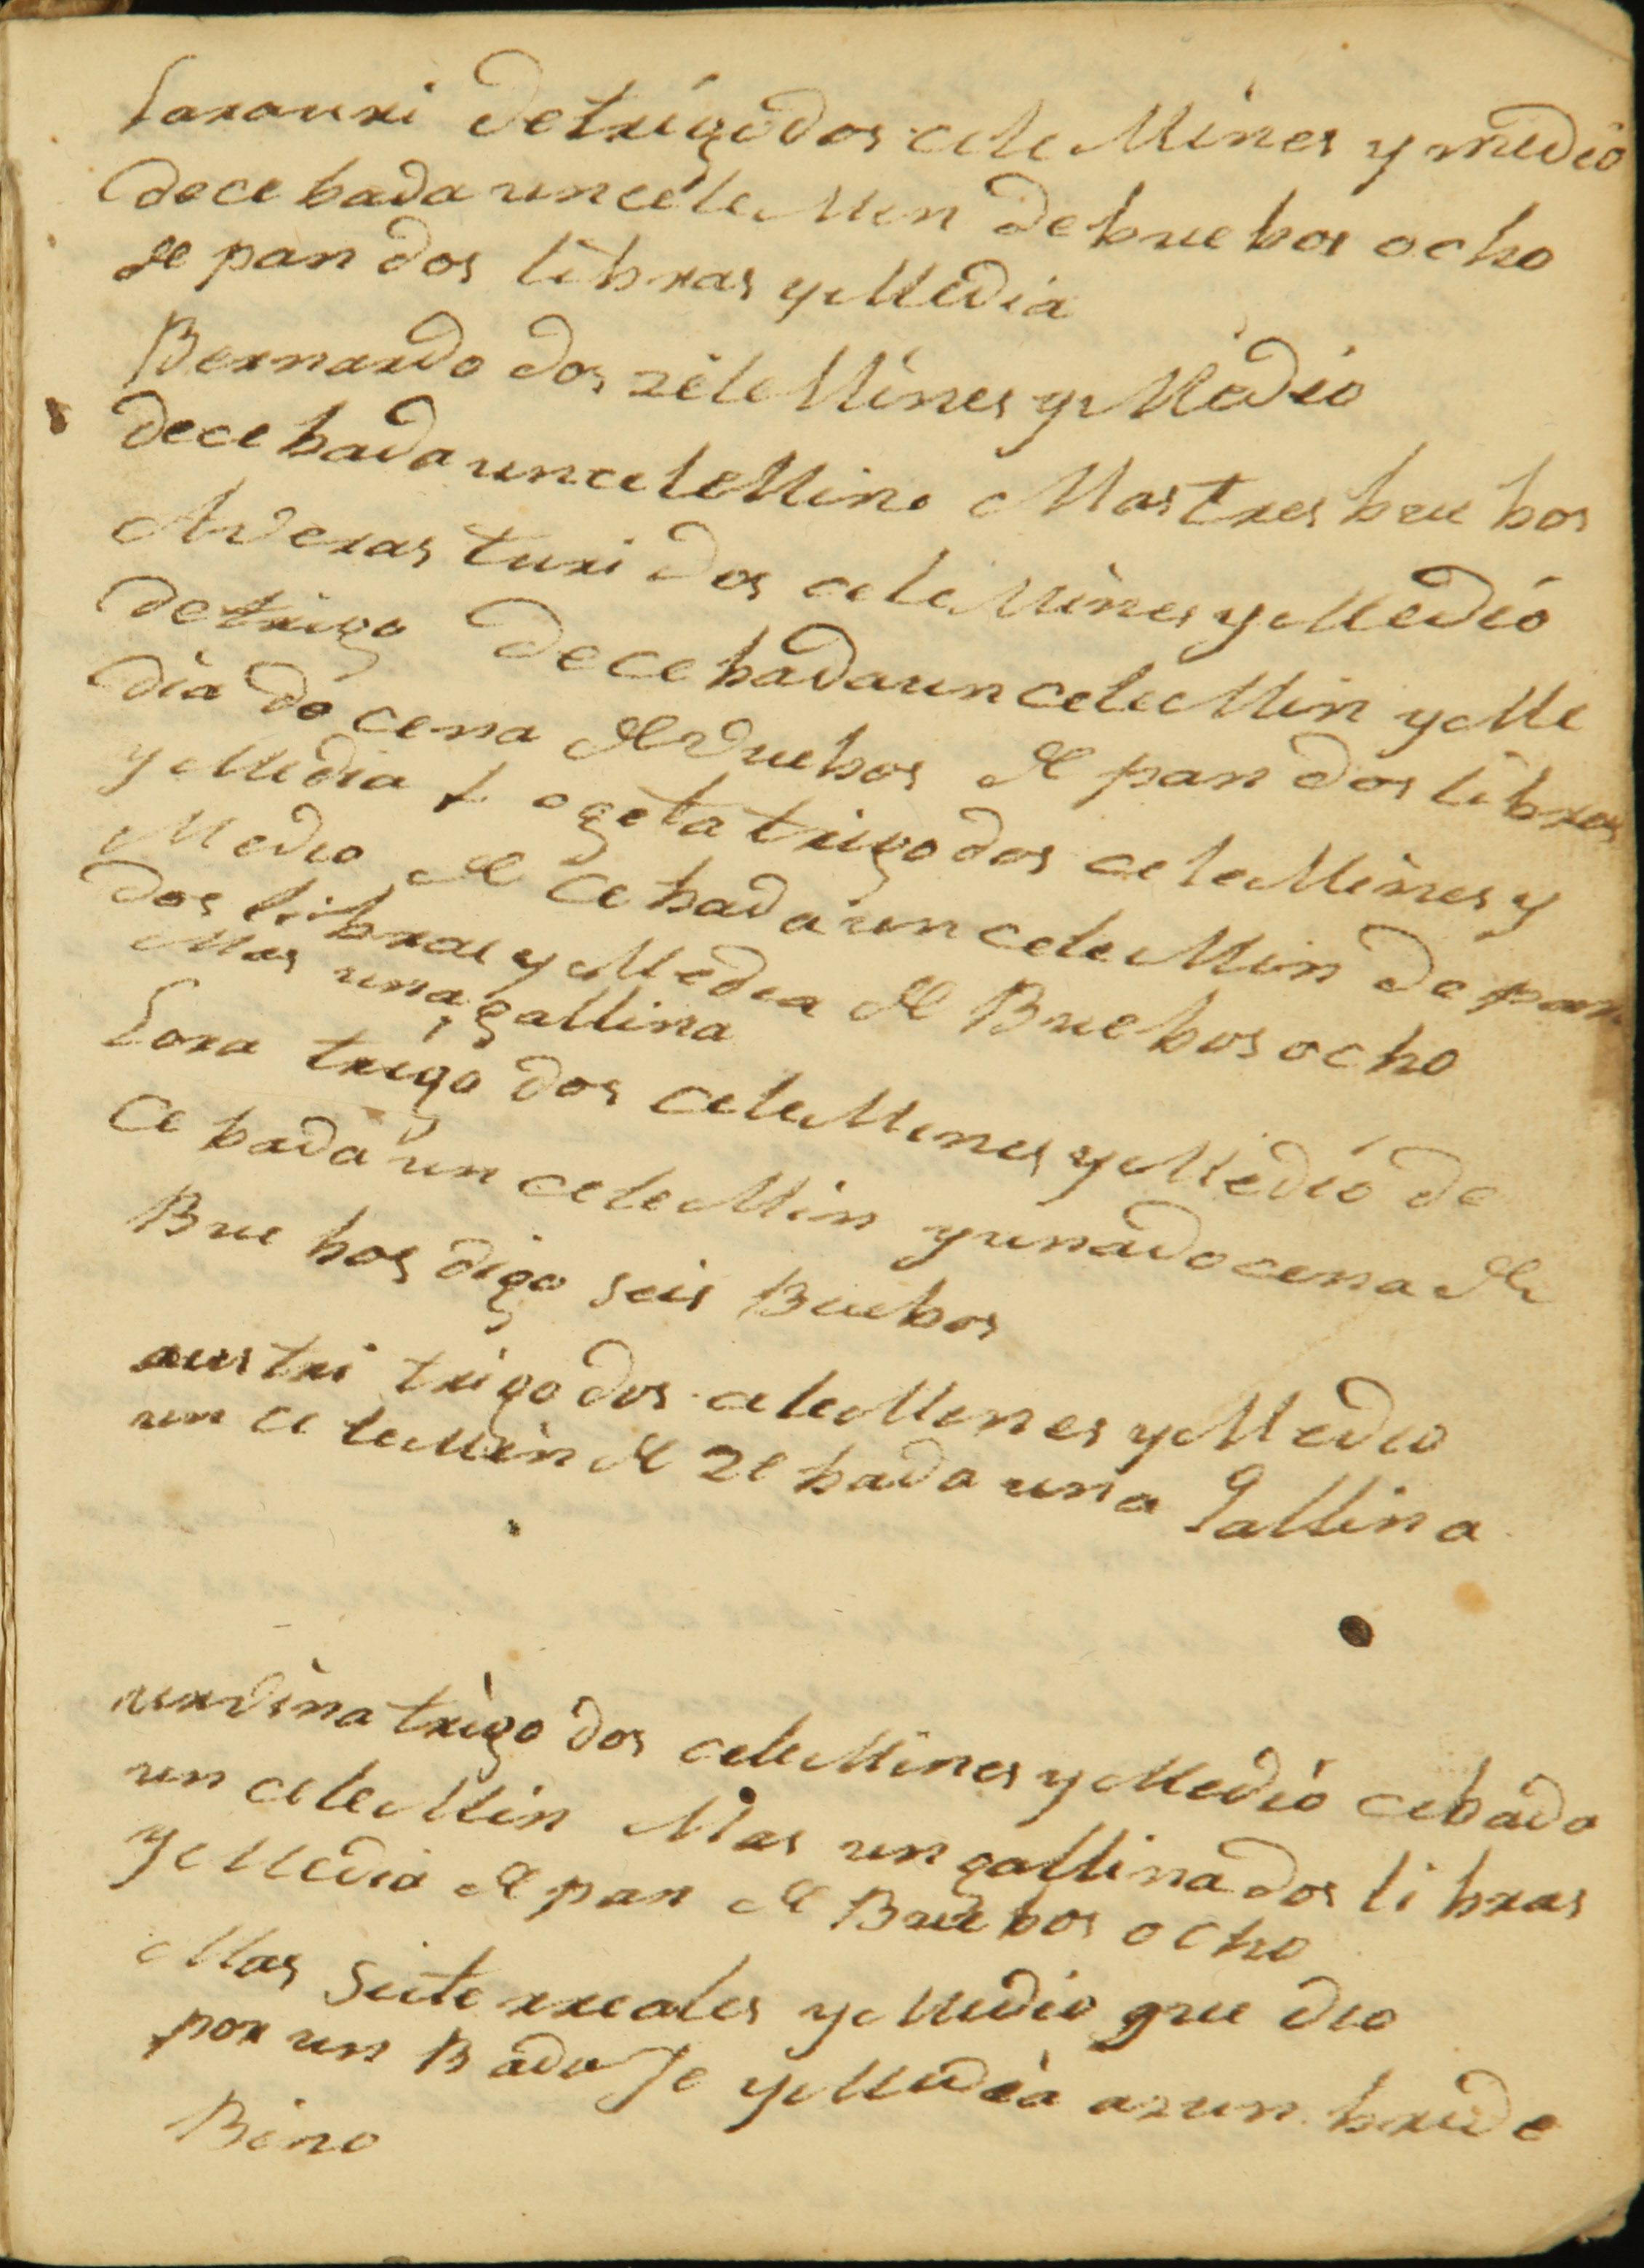 Laraurri de trigo dos celeMines y medio
de cebada un celeMin de buebos ocho
de pan dos libras y Media
Bernardo dos zeleMines y Medio
de cebada un celeMin o Mas tres buebos
Averasturi dos celeMines y Medio
de trigo de cebada un celeMin y Me
dia docena de vuebos de pan dos libras
y Media Logeta trigo dos celeMines y
Medio de cebada un celeMin de pan
dos libras y Media de Buebos ocho
Mas una gallina
Lora trigo dos celeMines y Medio de
cebada un celeMin y una docena de
Buebos digo seis Buebos
austri trigo dos celeMines y Medio
un celeMin de zebada una gallina
urdina trigo dos celeMines y Medio cebada
un celeMin Mas un gallina dos libras
y Media de pan de Buebos ocho
Mas siete rreales y Medio que dio
por un BadaJe y Media azunbre de
Bino